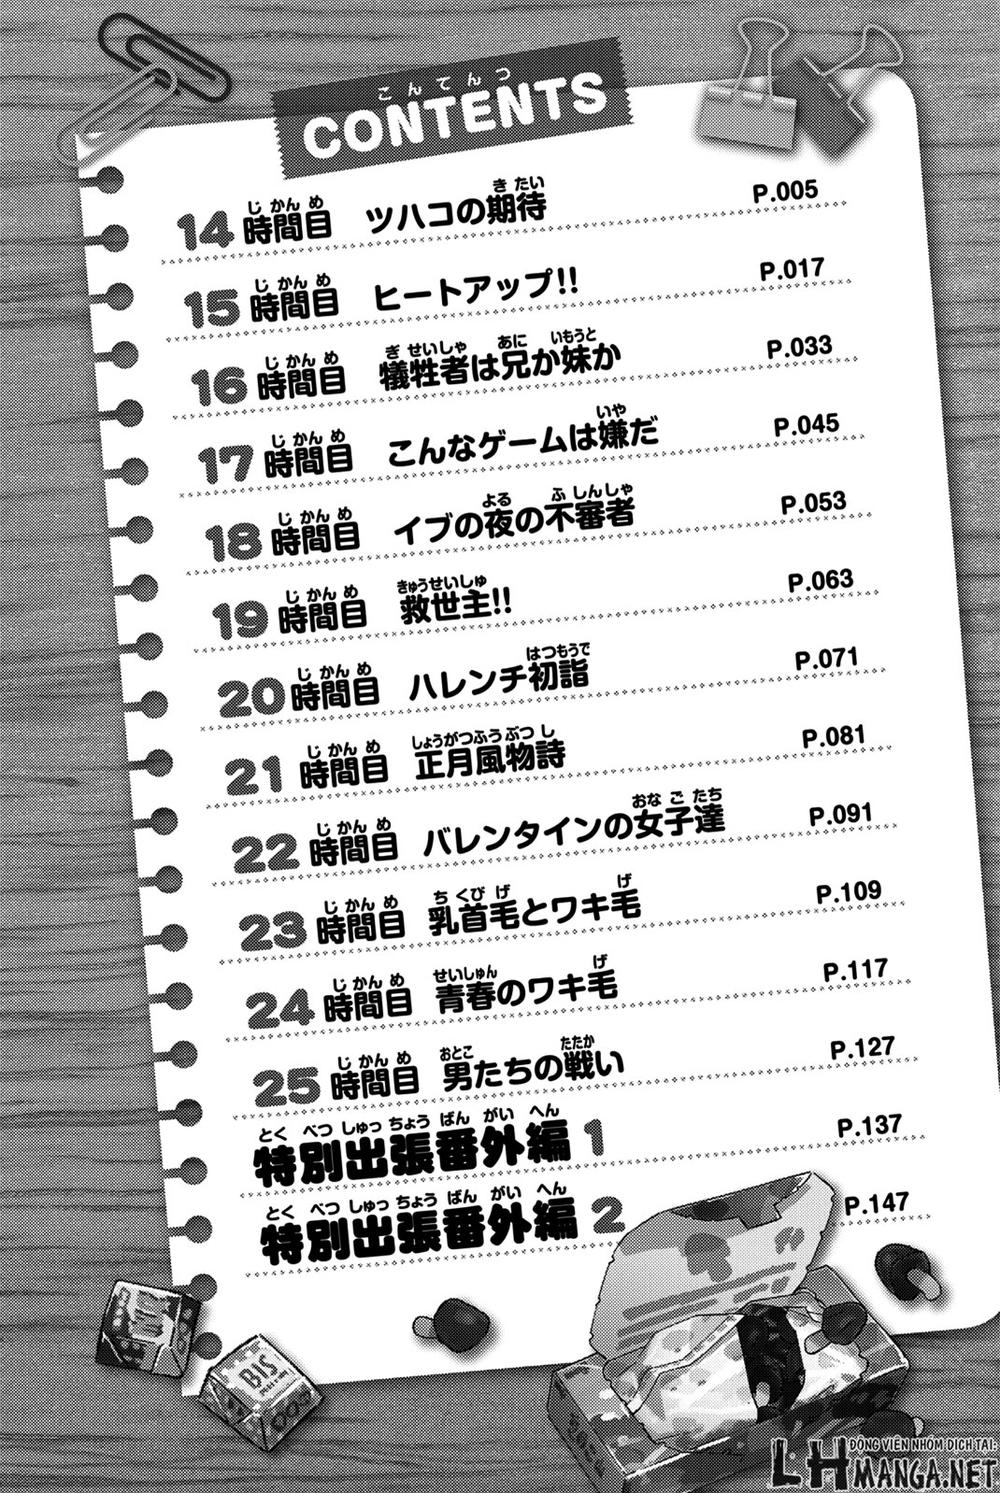 こんてんつ
CONTENTS
14時間目 ツハコの期待 P.005
15時間目 ヒートアップ!! P.017
16時間目 犠牲者は兄か妹か P.033
17時間目 こんなゲームは嫌だ P.045
18時間目 イブの夜の不審者 P.053
19時間目 救世主!! P.063
20時間目 ハレンチ初詣 P.071
21時間目 正月風物詩 P.081
22時間目 バレンタインの女子達 P.091
23時間目 乳首毛とワキ毛 P.109
24時間目 青春のワキ毛 P.117
25時間目 男たちの戦い P.127
特別出張番外編 1 P.137
特別出張番外編 2 P.147
BIS
ĐỘNG VIÊN NHÓM DỊCH TẠI:
LHMANGA.NET